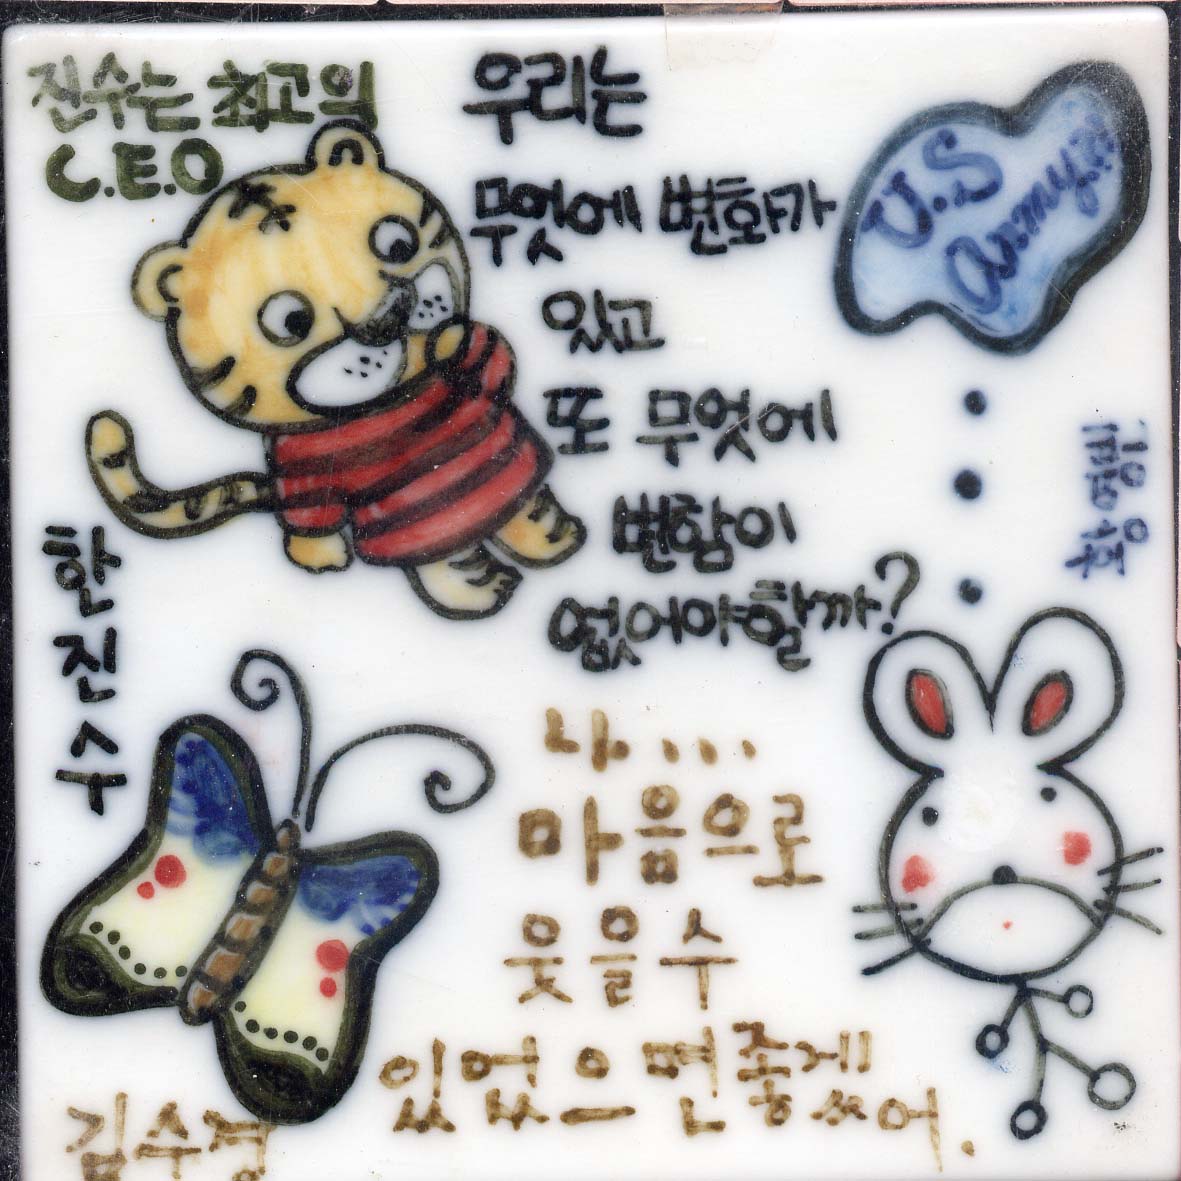 진수는 최고의
C.E.O
우리는
무엇에 변화가
있고
또 무엇에
변함이
없어야할까?
U.S
Army
한진수
나...
마음으로
웃을수
있었으면 좋겠어.
김수경